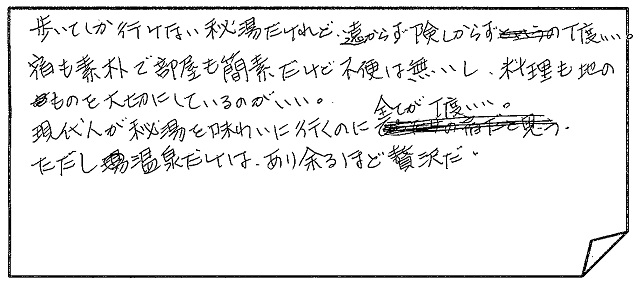 歩いてしか行けない秘湯だけれど、遠からず険しからずの丁度いい。
宿も素朴で部屋も簡素だけど不便は無いし、料理も地の
ものを大切にしているのがいい。
現代人が秘湯を味わいに行くのに全てが丁度いい。
ただし温泉だけは、あり余るほど贅沢だ。